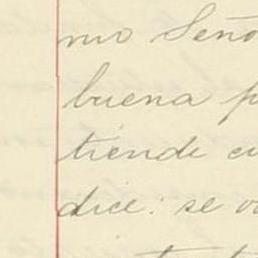 mo Seño
buena p
tiende cu
dice: se v